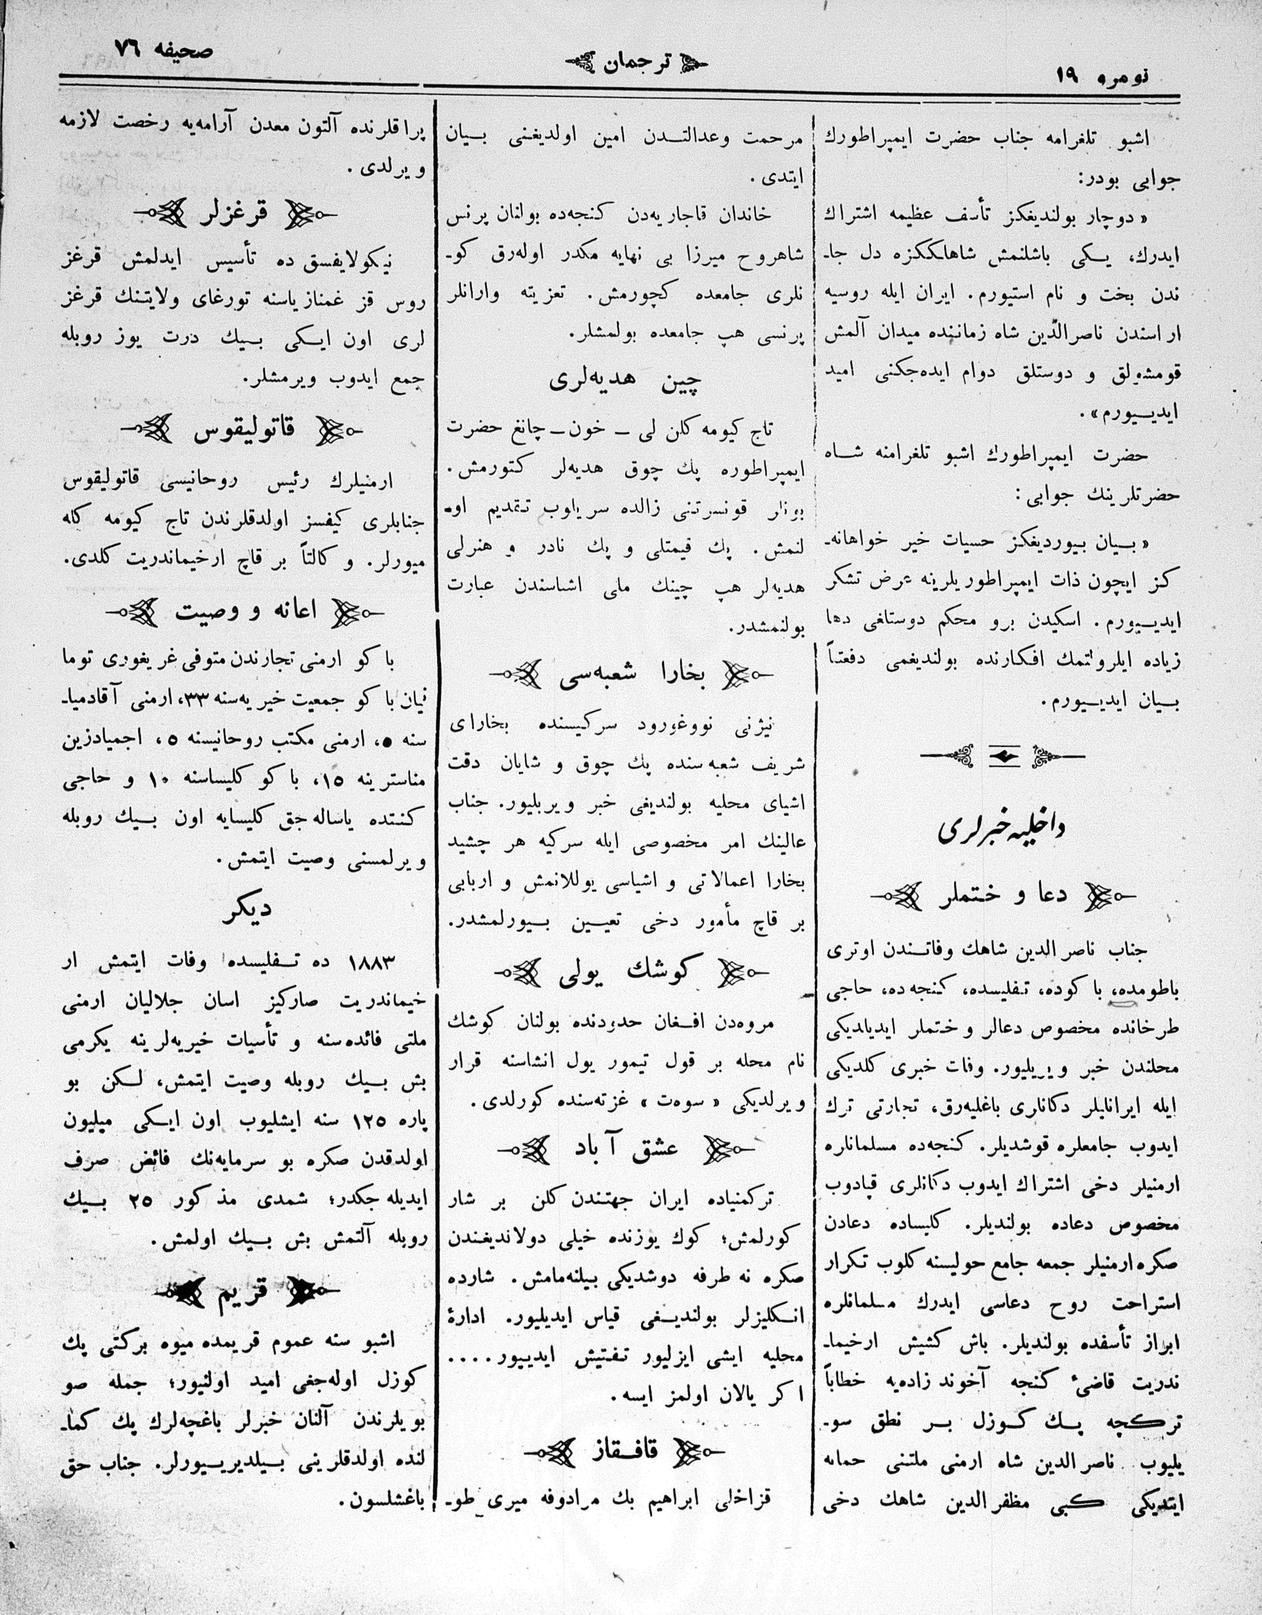 نومرو ١٩
ترجمان
صحيفه ٧٦
اشبو تلغرامه جناب حضرت ايمپراطورك
جوابى بودر:
«دوچار بولنديغكز تأسف عظيمه اشتراك
ايدرك، يكى باشلنمش شاهلككزه دل جا۔
ندن بخت و نام استيورم. ايران ايله روسيه
اراسندن ناصرالدّين شاه زماننده ميدان آلمش
قومشولق و دوستلق دوام ايده‌جكنى اميد
ايديورم».
حضرت ايمپراطورك اشبو تلغرامنه شاه
حضرتلرينك جوابى:
«بيان بيورديغكز حسيات خير خواهانه۔
كز ايچون ذات ايمپراطوريلرينه عرض تشكر
ايديورم. اسكيدن برو محكم دوستلغى دها
زياده ايلرولتمك افكارنده بولنديغمى دفعتاً
بيان ايديورم.
داخليه خبرلرى
دعا و ختملر
جناب ناصر الدين شاهك وفاتندن اوترى
باطومده، باكوده، تفليسده، كنجه‌ده، حاجى
طرخانده مخصوص دعالر و ختملر ايديلديكى
محلندن خبر ويريليور. وفات خبرى كلديكى
ايله ايرانليلر دكانلرى باغليه‌رق، تجارتى ترك
ايدوب جامعلره قوشديلر. كنجه‌ده مسلمانلره
ارمنيلر دخى اشتراك ايدوب دكانلرى قپادوب
مخصوص دعاده بولنديلر. كليساده دعادن
صكره ارمنيلر جمعه جامع حوليسنه كلوب تكرار
استراحت روح دعاسى ايدرك مسلمانلره
ابراز تأسفده بولنديلر. باش كشيش ارخيما۔
ندريت قاضئ كنجه آخوند زاده‌يه خطاباً
تركچه پك كوزل بر نطق سو۔
يليوب ناصر الدين شاه ارمنى ملتنى حمايه
ايتديكى كبى مظفر الدين شاهك دخى
مرحمت وعدالتدن امين اولديغنى بيان
ايتدى.
خاندان قاجاريه‌دن كنجه‌ده بولنان پرنس
شاهروح ميرزا بى نهايه مكدر اوله‌رق كو۔
نلرى جامعده كچورمش. تعزيته وارانلر
پرنسى هپ جامعده بولمشلر.
چين هديه‌لرى
تاج كيومه كلن لى – خون – چانغ حضرت
ايمپراطوره پك چوق هديه‌لر كتورمش.
بونلر قونسرتنى زالده سريلوب تقديم او۔
لنمش. پك قيمتلى و پك نادر و هنرلى
هديه‌لر هپ چينك ملى اشاسندن عبارت
بولنمشدر.
بخارا شعبه‌سى
نيژنى نووغورود سركيسنده بخاراى
شريف شعبه‌سنده پك چوق و شايان دقت
اشياى محليه بولنديغى خبر ويريليور. جناب
عالينك امر مخصوصى ايله سركيه هر چشيد
بخارا اعمالاتى و اشياسى يوللانمش و اربابى
بر قاچ مأمور دخى تعيين بيورلمشدر.
كوشك يولى
مروه‌دن افغان حدودنده بولنان كوشك
نام محله بر قول تيمور يول انشاسنه قرار
ويرلديكى «سوه‌ت» غزته‌سنده كورلدى.
عشق آباد
تركمنياده ايران جهتندن كلن بر شار
كورلمش؛ كوك يوزنده خيلى دولانديغندن
صكره نه طرفه دوشديكى بيلنه‌مامش. شارده
انكليزلر بولنديغى قياس ايديليور. ادارهٔ
محليه ايشى ايزليور تفتيش ايدييور....
اكر يالان اولمز ايسه.
قافقاز
قزاخلى ابراهيم بك مرادوفه ميرى طو۔
پراقلرنده آلتون معدن آرامه‌يه رخصت لازمه
ويرلدى.
قرغزلر
نيكولايفسق ده تأسيس ايدلمش قرغز
روس قز غمنازياسنه تورغاى ولايتنك قرغز
لرى اون ايكى بيك درت يوز روبله
جمع ايدوب ويرمشلر.
قاتوليقوس
ارمنيلرك رئيس روحانيسى قاتوليقوس
جنابلرى كيفسز اولدقلرندن تاج كيومه كله
ميورلر. وكالتاً بر قاچ ارخيماندريت كلدى.
اعانه و وصيت
باكو ارمنى تجارندن متوفى غريغورى توما
نيان باكو جمعيت خيريه‌سنه ٣٣، ارمنى آقادميا۔
سنه ٥، ارمنى مكتب روحانيسنه ٥، اجميادزين
مناسترينه ١٥، باكو كليساسنه ١٠ و حاجى
كنتده ياساله‌جق كليسايه اون بيك روبله
ويرلمسنى وصيت ايتمش.
ديكر
١٨٨٣ ده تفليسده وفات ايتمش ار
خيماندريت صاركيز اسان جلاليان ارمنى
ملتى فائده‌سنه و تأسيات خيريه‌لرينه يكرمى
بش بيك روبله وصيت ايتمش، لكن بو
پاره ١٢٥ سنه ايشليوب اون ايكى ميليون
اولدقدن صكره بو سرمايه‌نك فائض صرف
ايديله جكدر؛ شمدى مذكور ٢٥ بيك
روبله آلتمش بش بيك اولمش.
قريم
اشبو سنه عموم قريمده ميوه بركتى پك
كوزل اوله‌جغى اميد اولنيور؛ جمله صو
بويلرندن آلنان خبرلر باغچه‌لرك پك كما۔
لنده اولدقلرينى بيلديرييورلر. جناب حق
باغشلسون.